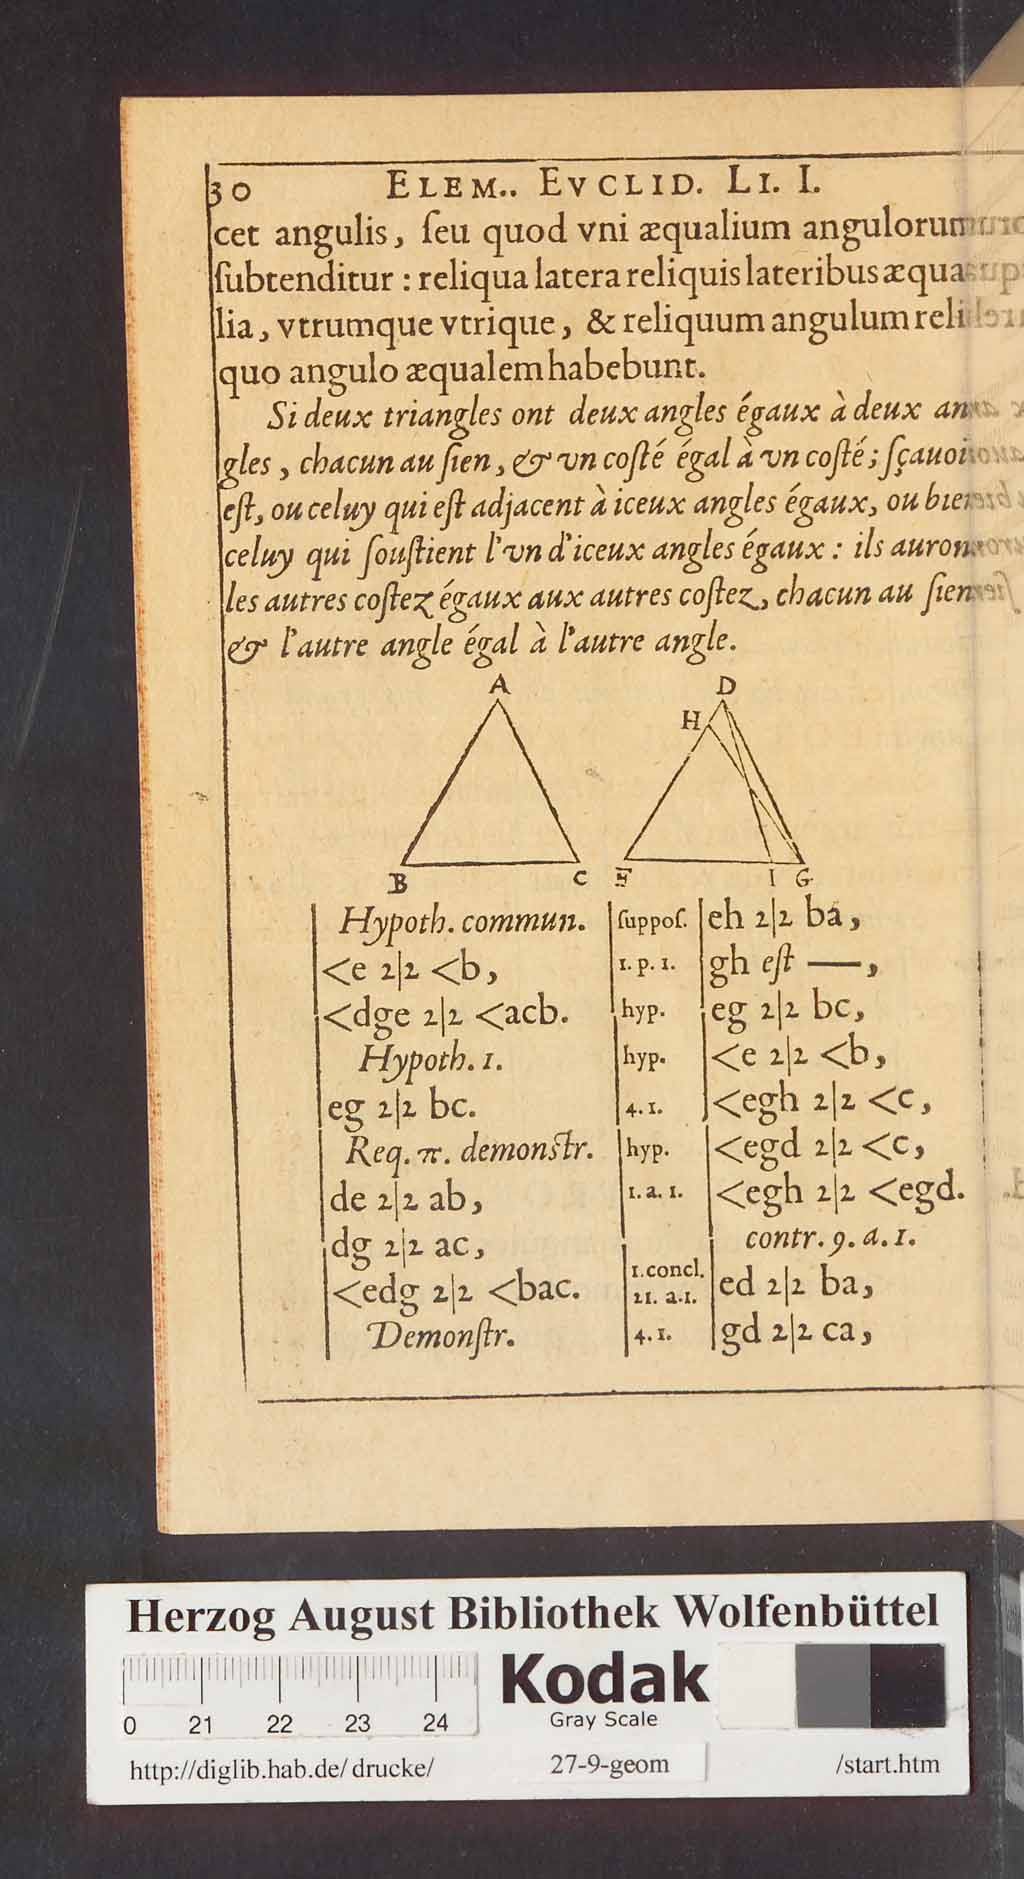 30 ELEM.. EVCLID. LI. I.
cet angulis, ſeu quod vni æqualium angulorum
ſubtenditur : reliqua latera reliquis lateribus æqua
lia, vtrumque vtrique, & reliquum angulum reli
quo angulo æqualem habebunt.
Si deux triangles ont deux angles égaux à deux an
gles, chacun au ſien, & vn coſté égal à vn coſté; ſçauoi
eſt, ou celuy qui eſt adjacent à iceux angles égaux, ou bien
celuy qui ſouſtient l'vn d'iceux angles égaux : ils auron
les autres coſtez égaux aux autres coſtez, chacun au ſien
& l'autre angle égal à l'autre angle.
A
B
C
D
H
E
I
G
Hypoth. commun.
<e 2|2 <b,
<dge 2|2 <acb.
Hypoth. 1.
eg 2|2 bc.
Req. π. demonſtr.
de 2|2 ab,
dg 2|2 ac,
<edg 2|2 <bac.
Demonſtr.
ſuppoſ. eh 2|2 ba,
1. p. 1. gh eſt —,
hyp. eg 2|2 bc,
hyp. <e 2|2 <b,
4. 1. <egh 2|2 <c,
hyp. <egd 2|2 <c,
1. a. 1. <egh 2|2 <egd.
contr. 9. a. 1.
1. concl.
21. a.1. ed 2|2 ba,
4. 1. gd 2|2 ca,
Herzog August Bibliothek Wolfenbüttel
Kodak
Gray Scale
0 21 22 23 24
http://diglib.hab.de/drucke/ 27-9-geom /start.htm